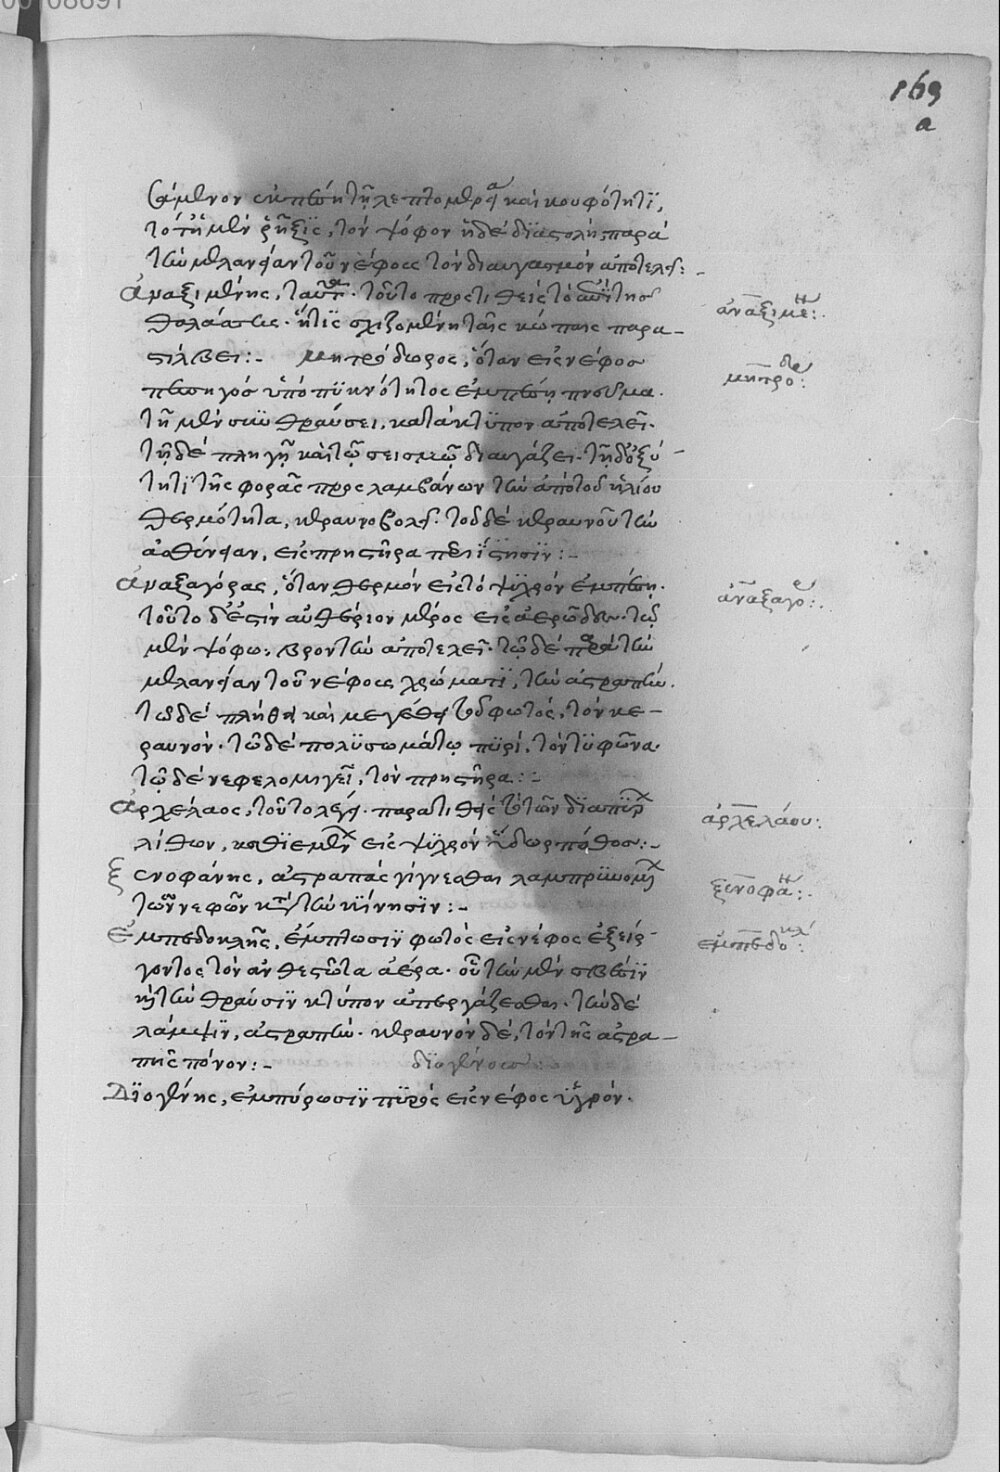 169
a
σάμενον ἐκπέσῃ τῇ λεπτομερείᾳ καὶ κουφότητι,
τότε ἡ μὲν ῥῆξις, τὸν ψόφον ἡ δὲ διαστολὴ παρὰ
τὴν μελανίαν τοῦ νέφους τὸν διαυγασμὸν ἀποτελεῖ:-
Ἀναξιμένης, ταὐτὰ τούτῳ προστιθεὶς τὸ ἐπὶ τῆς
θαλάσσης· ἥτις σχιζομένη ταῖς κώπαις παρα-
στίλβει:- Μητρόδωρος, ὅταν εἰς νέφος
πεπηγὸς ὑπὸ πυκνότητος ἐμπέσῃ πνεῦμα·
τῇ μὲν συνθραύσει, κατὰ κτύπον ἀποτελεῖ·
τῇ δὲ πληγῇ καὶ τῷ σεισμῷ διαυγάζει· τῇ δ' ὀξύ-
τητι τῆς φορᾶς προσλαμβάνων τὴν ἀπὸ τοῦ ἡλίου
θερμότητα, κεραυνοβολεῖ· τοῦ δὲ κεραυνοῦ τὴν
ἀσθένειαν, εἰς πρηστῆρα περιΐστησιν:-
Ἀναξαγόρας, ὅταν θερμὸν εἰς τὸ ψυχρὸν ἐμπέσῃ·
τοῦτο δ' ἐστὶν αἰθέριον μέρος εἰς ἀερῶδες· τῷ
μὲν ψόφῳ· βροντὴν ἀποτελεῖ· τῷ δὲ παρὰ τὴν
μελανίαν τοῦ νέφους χρώματι, τὴν ἀστραπήν.
τῷ δὲ πλήθει καὶ μεγέθει τοῦ φωτός, τὸν κε-
ραυνόν· τῷ δὲ πολυσωμάτῳ πυρί, τὸν τυφῶνα·
τῷ δὲ νεφελομιγεῖ, τὸν πρηστῆρα:-
Ἀρχέλαος, τοῦτο λέγει· παρατιθεὶς τὸ τῶν διαπύρων
λίθων, καθιεμένων εἰς ψυχρὸν ὕδωρ πάθος:-
Ξενοφάνης, ἀστραπὰς γίγνεσθαι λαμπρυνομένων
τῶν νεφῶν κατὰ τὴν κίνησιν:-
Ἐμπεδοκλῆς, ἔμπτωσιν φωτὸς εἰς νέφος ἐξείρ-
γοντος τὸν ἀνθεστῶτα ἀέρα· οὗ τὴν μὲν σβέσιν
καὶ τὴν θραῦσιν κτύπον ἀπεργάζεσθαι· τὴν δὲ
λάμψιν, ἀστραπήν· κεραυνὸν δέ, τὸν τῆς ἀστρα-
πῆς πόνον:- διογένους:
Διογένης, ἐμπύρωσιν πυρὸς εἰς νέφος ὑγρόν·
ἀναξιμένη:.
μητροδω:
ἀναξαγο:.
ἀρχελάου:
ξενοφάνη:.
ἐμπεδοκλ: